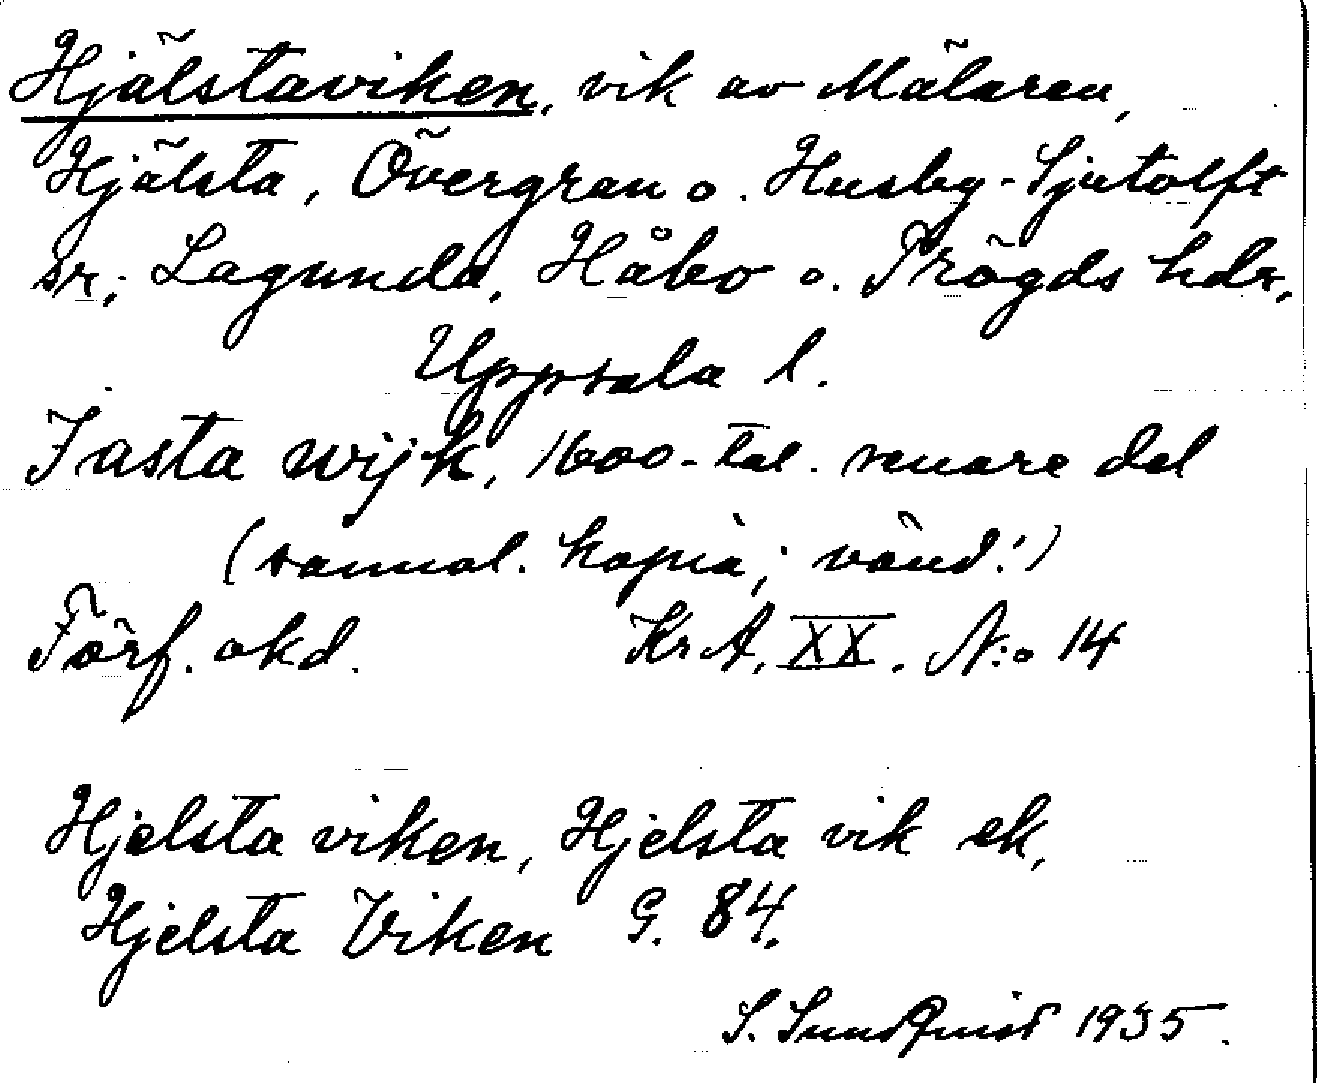 Hjälstaviken, vik av Mälaren,
Hjälsta, Övergran o. Husby-Sjutolft
sr, Lagunda, Håbo o. Trögds hdr,
Uppsala l.
Jasta wijk, 1600-tal. senare del
(sannol. kopia; vänd!)
Förf. okd. KrA, XX. N:o 14
Hjelsta viken, Hjelsta vik ek,
Hjelsta Viken G. 84.
S. Sundquist 1935.